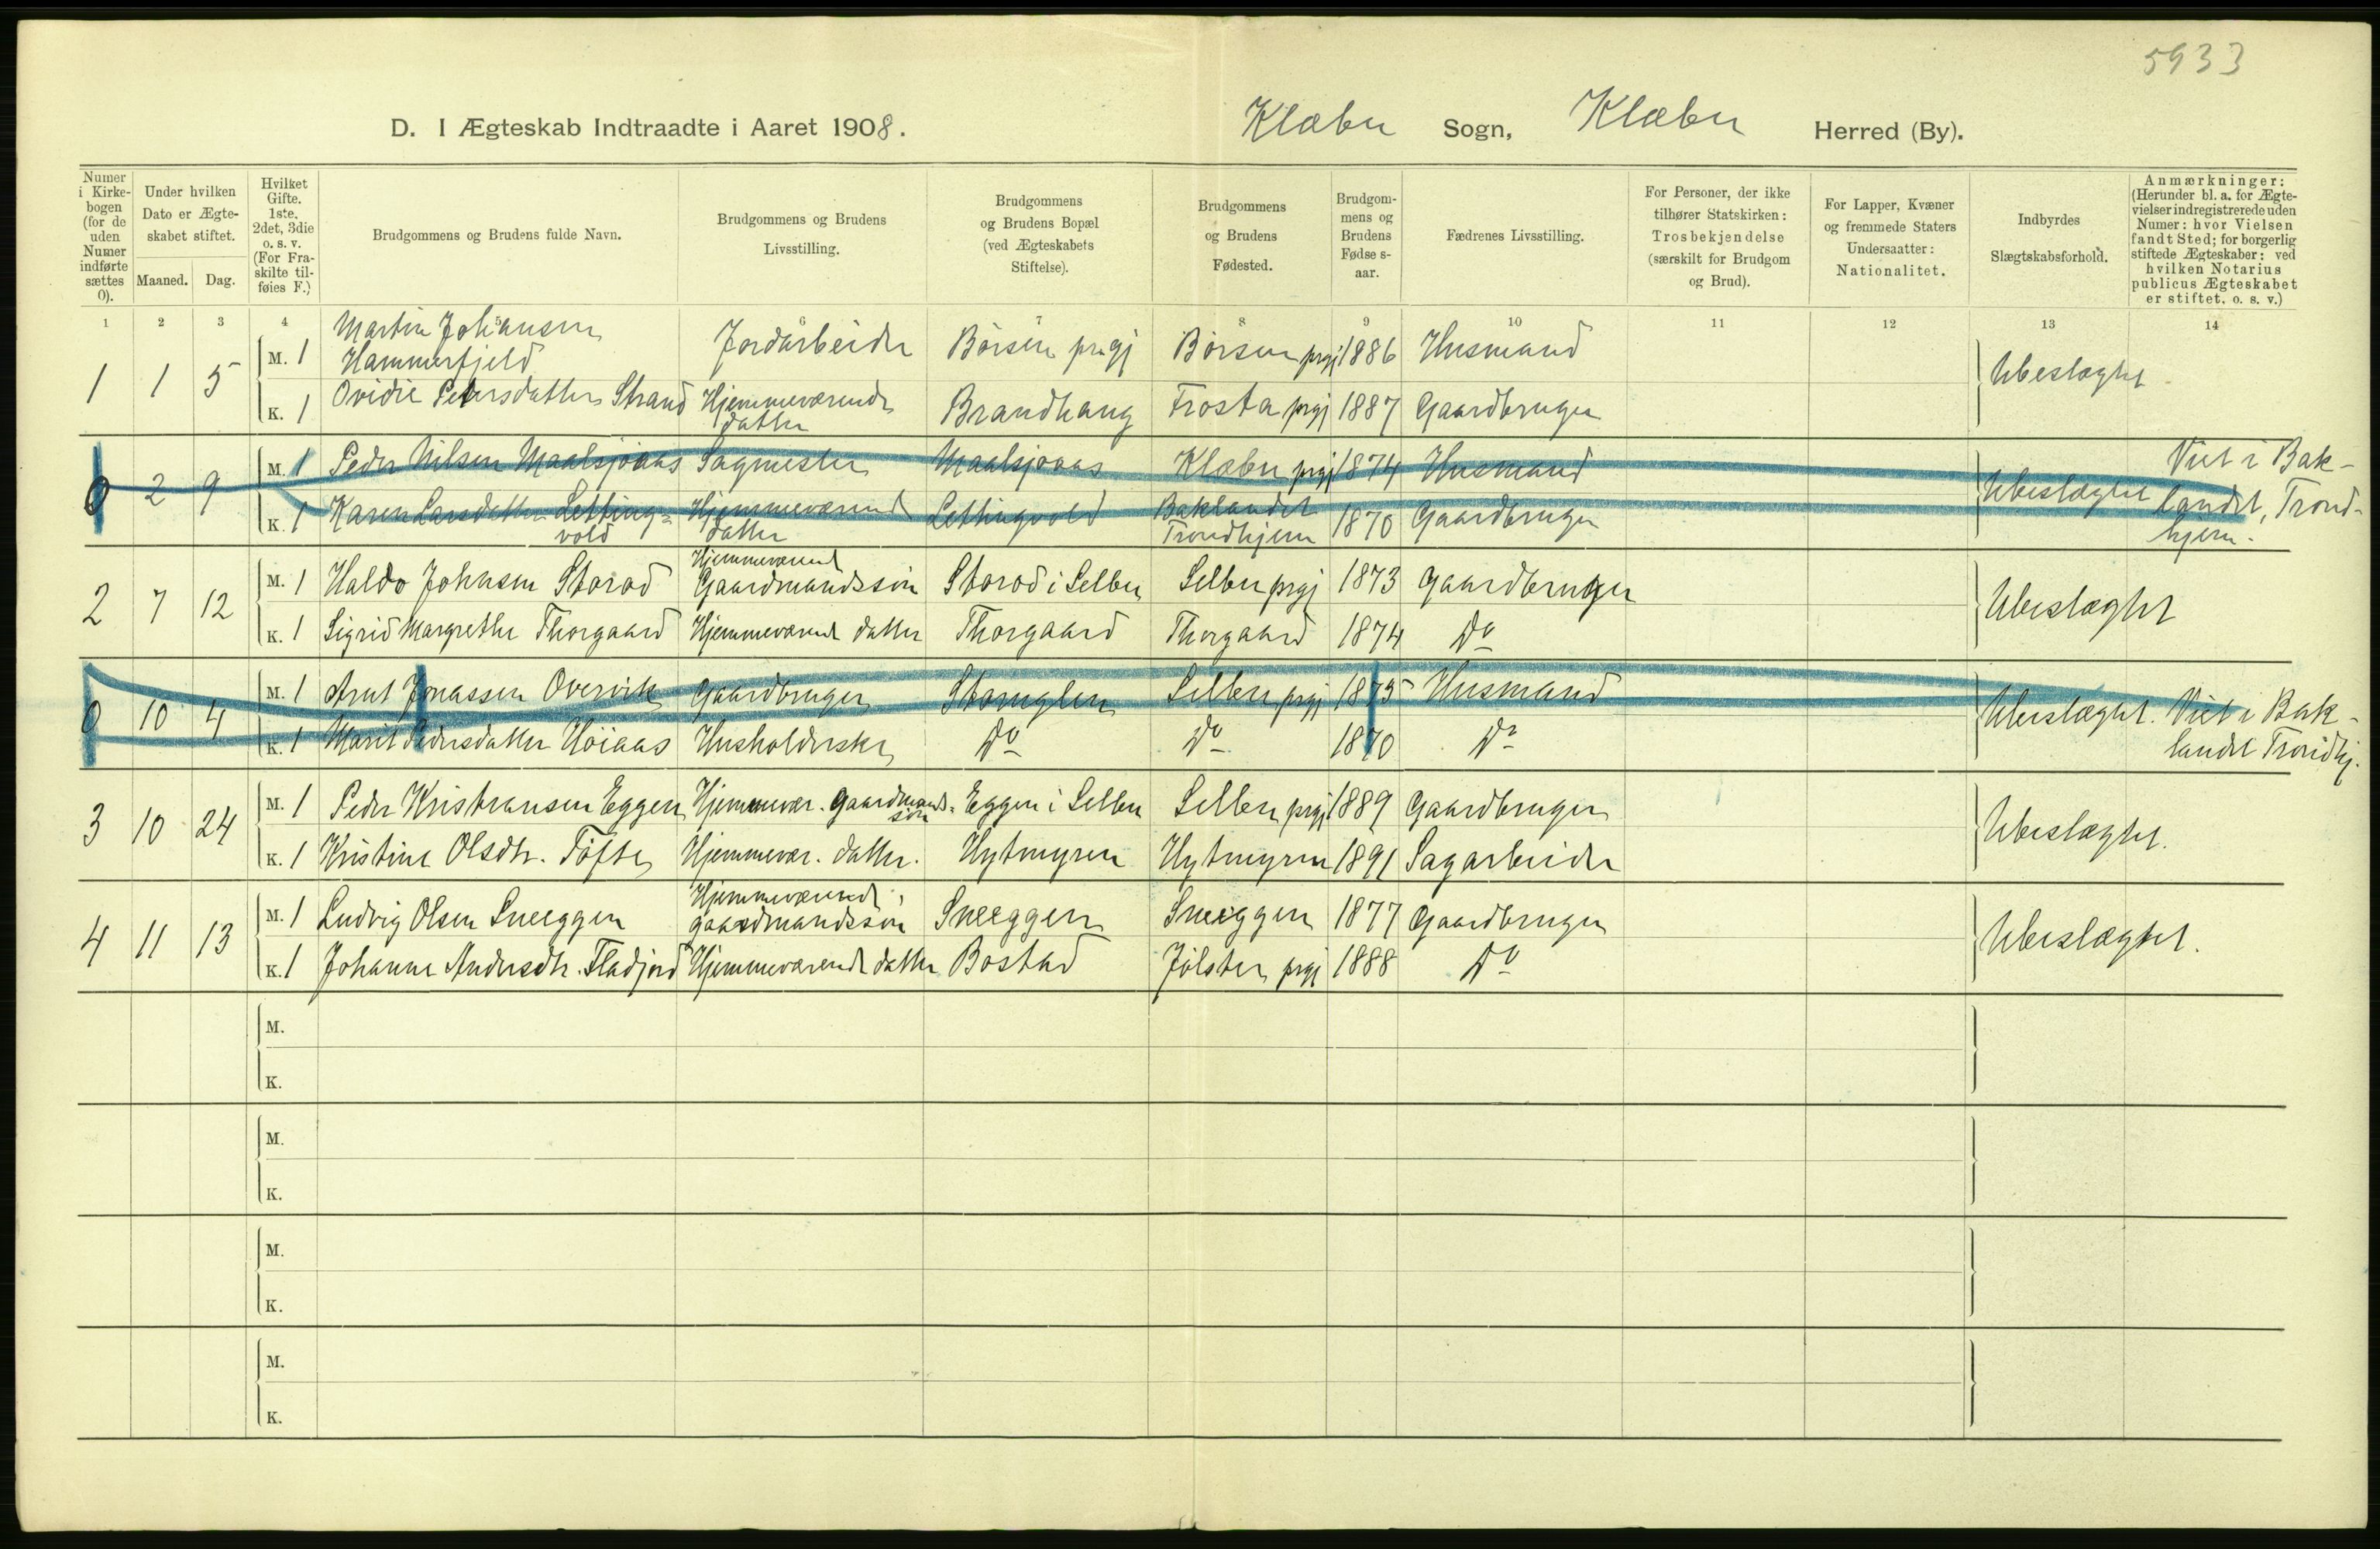 5933
D. I Ægteskab Indtraadte i Aaret 1908. Klæbu Sogn, Klæbu Herred (By).
Numer i Kirke-bogen (for de uden Numer indførte sættes 0).
Under hvilken Dato er Ægte-skabet stiftet.
Maaned. Dag.
Hvilket Gifte. 1ste. 2det, 3die o. s. v. (For Fra-skilte til-føies F.)
Brudgommens og Brudens fulde Navn.
Brudgommens og Brudens Livsstilling.
Brudgommens og Brudens Bopæl (ved Ægteskabets Stiftelse).
Brudgommens og Brudens Fødested.
Brudgom-mens og Brudens Fødse s-aar.
Fædrenes Livsstilling.
For Personer, der ikke tilhører Statskirken: Trosbekjendelse (særskilt for Brudgom og Brud).
For Lapper, Kvæner og fremmede Staters Undersaatter: Nationalitet.
Indbyrdes Slægtskabsforhold.
Anmærkninger: (Herunder bl. a. for Ægte-vielser indregistrerede uden Numer: hvor Vielsen fandt Sted; for borgerlig stiftede Ægteskaber: ved hvilken Notarius publicus Ægteskabet er stiftet. o. s. v.)
1 2 3 4 5 6 7 8 9 10 11 12 13 14
1 1 5 M. 1 Martin Johansen Hammerfjeld Jordarbeider Börsen prgj Börsen prgj 1886 Husmand Ubeslægtet
K. 1 Ovidie Petersdatter Strand Hjemmeværende datter Brandhaug Frosta prgj 1887 Gaardbruger
0 2 9 M. 1 Peder Nilsen Maalsjøaas Sagmester Maalsjøaas Klæbu prgj 1874 Husmand Ubeslægtet Viet i Bak-landet, Trond-hjem.
K. 1 Karen Larsdatter Letting=vold Hjemmeværend datter Lettingvold Baklandet Trondhjem 1870 Gaardbruger
2 7 12 M. 1 Haldo Johnsen Storød Hjemmeværend Gaardmandssön Storød i Selbu Selbu prgj 1873 Gaardbruger Ubeslægtet
K. 1 Sigrid Margrethe Thorgaard Hjemmeværend datter Thorgaard Thorgaard 1874 Do
0 10 4 M. 1 Arnt Jonassen Overvik Gaardbruger Storuglen Selbu prgj 1875 Husmand Ubeslægtet. Viet i Bak-landet Trondhj.
K. 1 Marit Pedersdatter Höiaas Husholderske Do Do 1870 Do
3 10 24 M. 1 Peder Kristiansen Eggen Hjemmevær. Gaardmands=sön Eggen i Selbu Selbu prgj 1889 Gaardbruger Ubeslægtet.
K. 1 Kristine Olsdtr. Töfte Hjemmevær. datter. Hytmyren Hytmyren 1891 Sagarbeider
4 11 13 M. 1 Ludvig Olsen Sneeggen Hjemmeværend gaardmandssön Sneeggen Sneeggen 1877 Gaardbruger Ubeslægtet.
K. 1 Johanne Andersdtr. Fladjord Hjemmeværende datter Bostad Jölster prgj 1888 Do
M.
K.
M.
K.
M.
K.
M.
K.